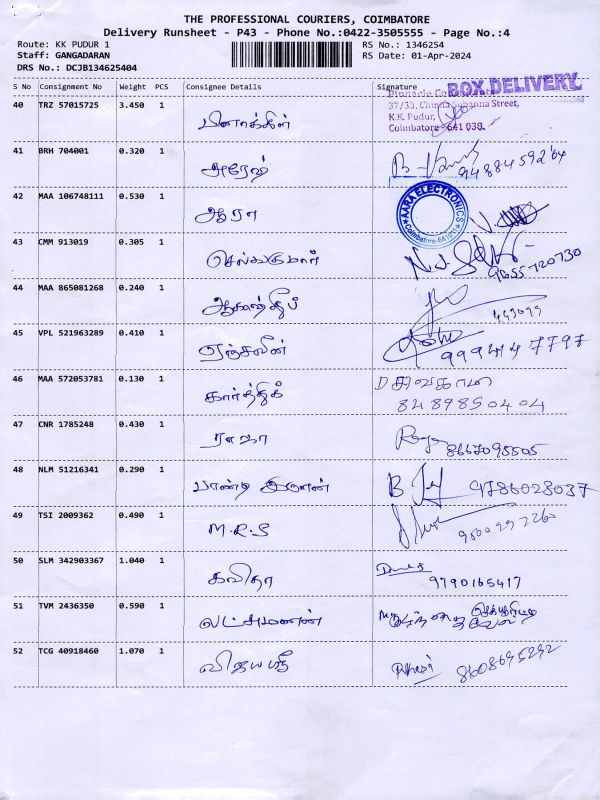 THE PROFESSIONAL COURIERS, COIMBATORE
Delivery Runsheet - P43 - Phone No.:0422-3505555 - Page No.:4
Route: KK PUDUR 1 RS No.: 1346254
Staff: GANGADARAN RS Date: 01-Apr-2024
DRS No.: DCJB134625404
S No Consignment No Weight PCS Consignee Details Signature
BOX DELIVERY
37/33, Chinna Subanna Street,
K.K. Pudur,
Coimbatore - 641 038.
40 TRZ 57015725 3.450 1 பினாக்கிள்
41 BRH 704001 0.320 1 அரேஷ்
42 MAA 106748111 0.530 1 ஆரா
AARA ELECTRONICS
43 CMM 913019 0.305 1 செல்வகுமார் 9655720730
44 MAA 865081268 0.240 1
45 VPL 521963289 0.410 1 ஏஞ்சலின் 9994447797
46 MAA 572053781 0.130 1 கார்த்திக் 8489850404
47 CNR 1785248 0.430 1 ராஜா 8667095505
48 NLM 51216341 0.290 1 பாண்டி 9786028037
49 TSI 2009362 0.490 1 M.R.S
50 SLM 342903367 1.040 1 கவிதா 9790165417
51 TVM 2436350 0.590 1 லட்சுமணன்
52 TCG 40918460 1.070 1 விஜயஸ்ரீ 8608695292